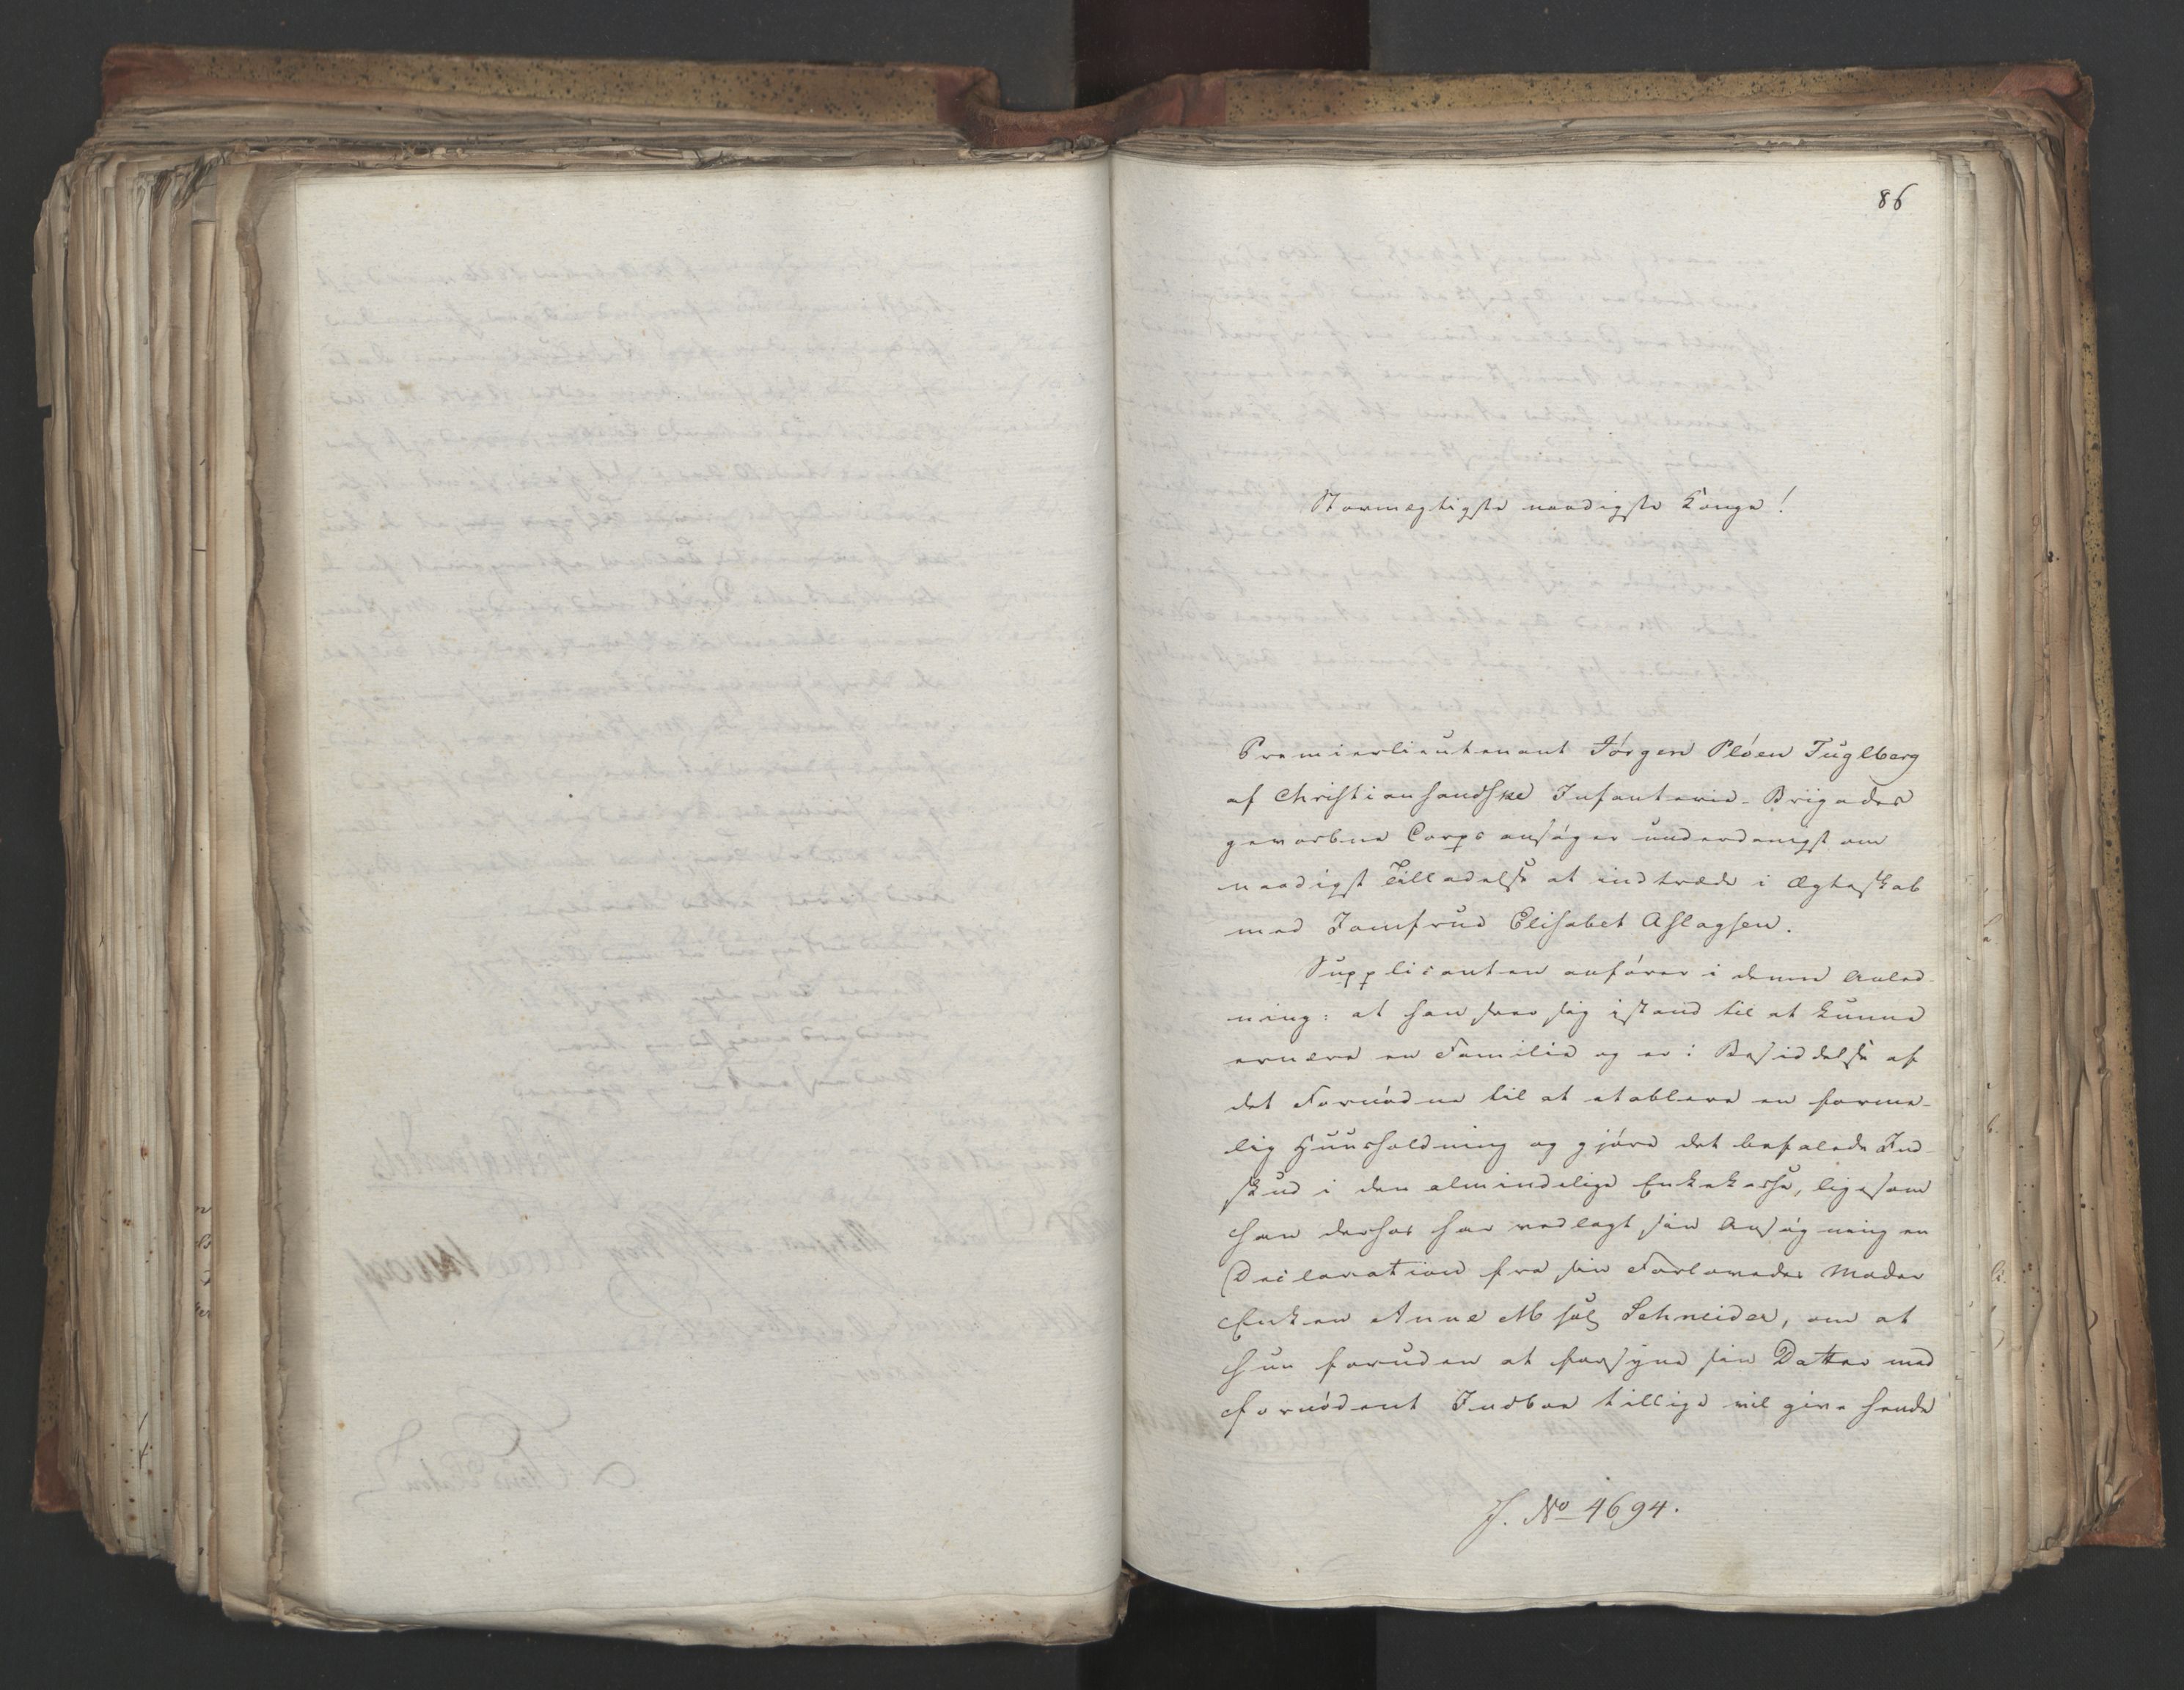 86
Stormegtigste naadigste Konge!
Premierlieutenant Jørgen Pløen Fuglberg
af Christiansandske Infanterie-Brigades
gevorbne Corps ansøger underdanigst om
naadigst Tilladelse at indtræde i Ægteskab
med Jomfrue Elisabet Aslagsen.
Supplicanten anfører i denne Anled-
ning: at han seer sig istand til at kunne
ernære en Familie og er i Besiddelse af
det Fornødne til at etablere en forme-
lig Huusholdning og gjøre det befalede Ind-
skud i den almindelige Enkekasse, ligesom
han derhos har vedlagt sin Ansøgning en
Declaration fra sin Forlovedes Moder
Enken Anne M sal Schneider, om at
hun foruden at forsyne sin Datter med
fornødent Indboe tillige vil give hende
J. No 4694.